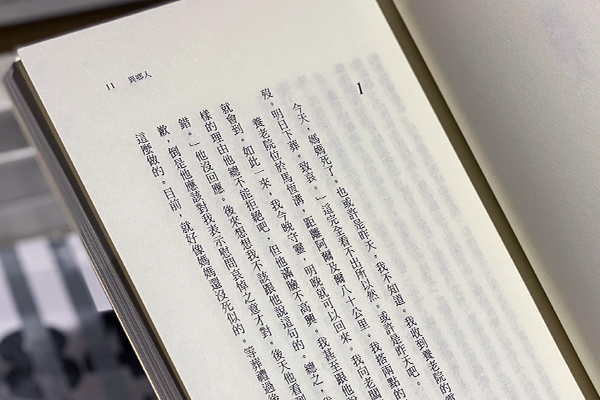 11 異鄉人
1
今天，媽媽死了。也或許是昨天，我不知道。我收到養老院的
歿。明日下葬。致哀。」這完全看不出所以然。或許是昨天吧。
養老院位於馬恆溝，距離阿爾及爾八十公里。我搭兩點的
就會到。如此一來，我今晚守靈，明晚就可以回來。我向老闆
樣的理由他總不能拒絕吧，但他滿臉不高興。我甚至跟他
錯。」他沒回應。後來想想我不該跟他說這句的。總之，
歉，倒是他應該對我表示慰問哀悼之意才對。後天他看到
這麼做的。目前，就好像媽媽還沒死似的。等葬禮過後